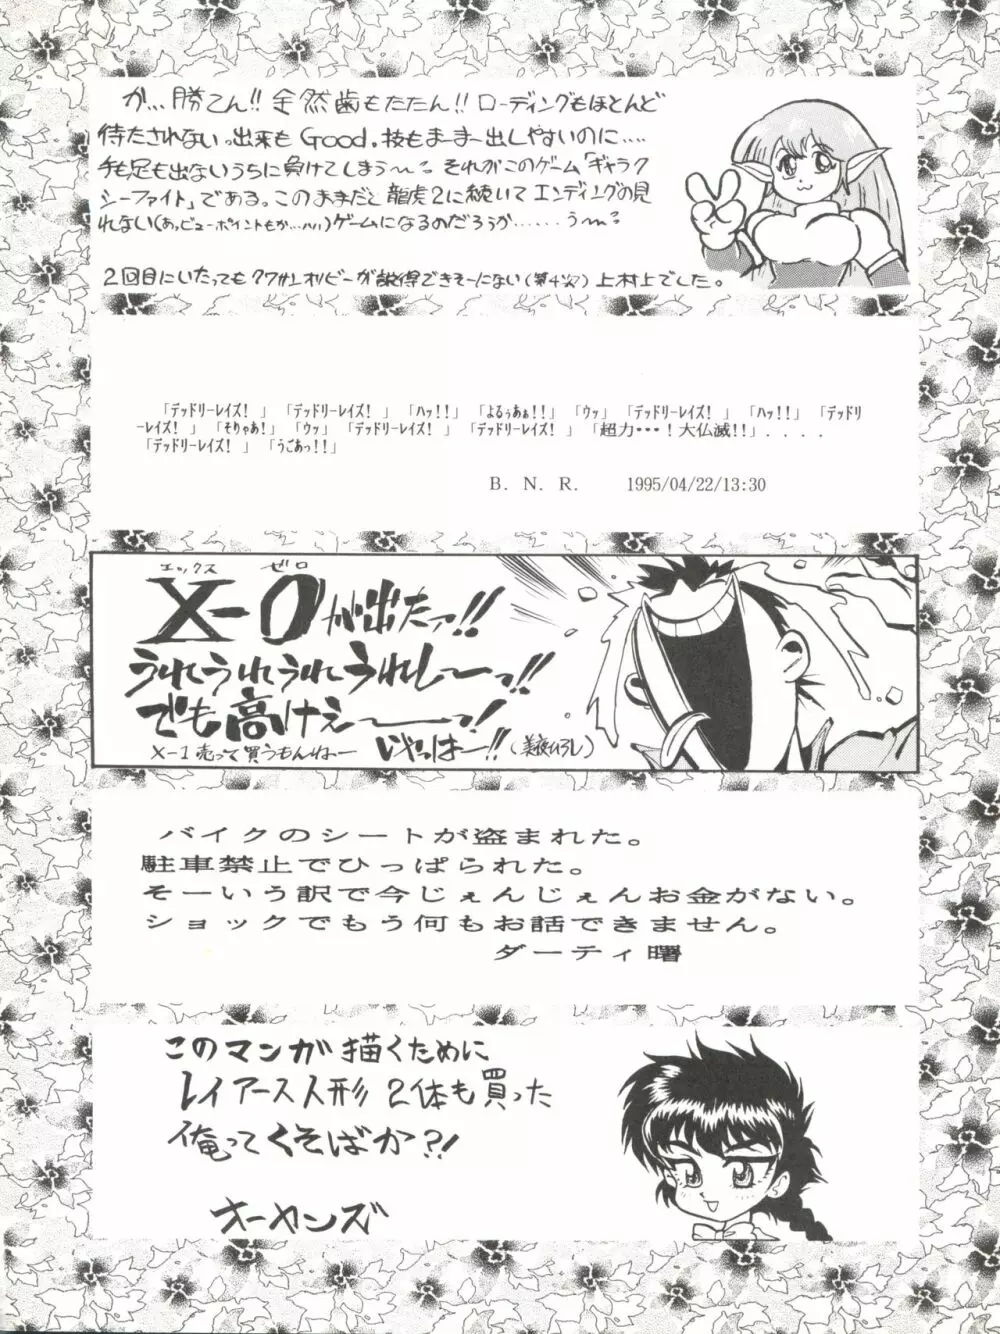 が…勝てん!! 全然歯もたたん!! ローディングもほとんど
待たされないっ出来もGood.技もまーまー出しやすいのに‥‥
手も足も出ないうちに負けてしまう〜 それがこのゲーム「ギャラク
シーファイト」である。このままだと龍虎2に続いてエンディングの見
れない(あっビューポイントもか…)ゲームになるのだろうか……う〜
2回目にいたってもクワサン、オリビーが説得できそーにない(第4次) 上村上でした。
「デッドリーレイズ! 」 「デッドリーレイズ! 」 「ハッ!!」 「よるぅあぁ!!」 「ウッ」 「デッドリーレイズ! 」 「ハッ!!」 「デッドリ
ーレイズ! 」 「そりゃあ!」 「ウッ」 「デッドリーレイズ! 」 「デッドリーレイズ! 」 「超力・・・！大仏滅!!」．．．．
「デッドリーレイズ! 」 「うごあっ!!」
B. N. R. 1995/04/22/13:30
エックス ゼロ
X-0が出たァ!!
うれうれうれうれし〜っ!!
でも高けぇ——っ!
X-1売って買うもんねー いやっはー!!
バイクのシートが盗まれた。
駐車禁止でひっぱられた。
そーいう訳で今じぇんじぇんお金がない。
ショックでもう何もお話できません。
ダーティ曙
このマンガ描くために
レイアース人形2体も買った
俺ってくそばか?!
オーカンズ